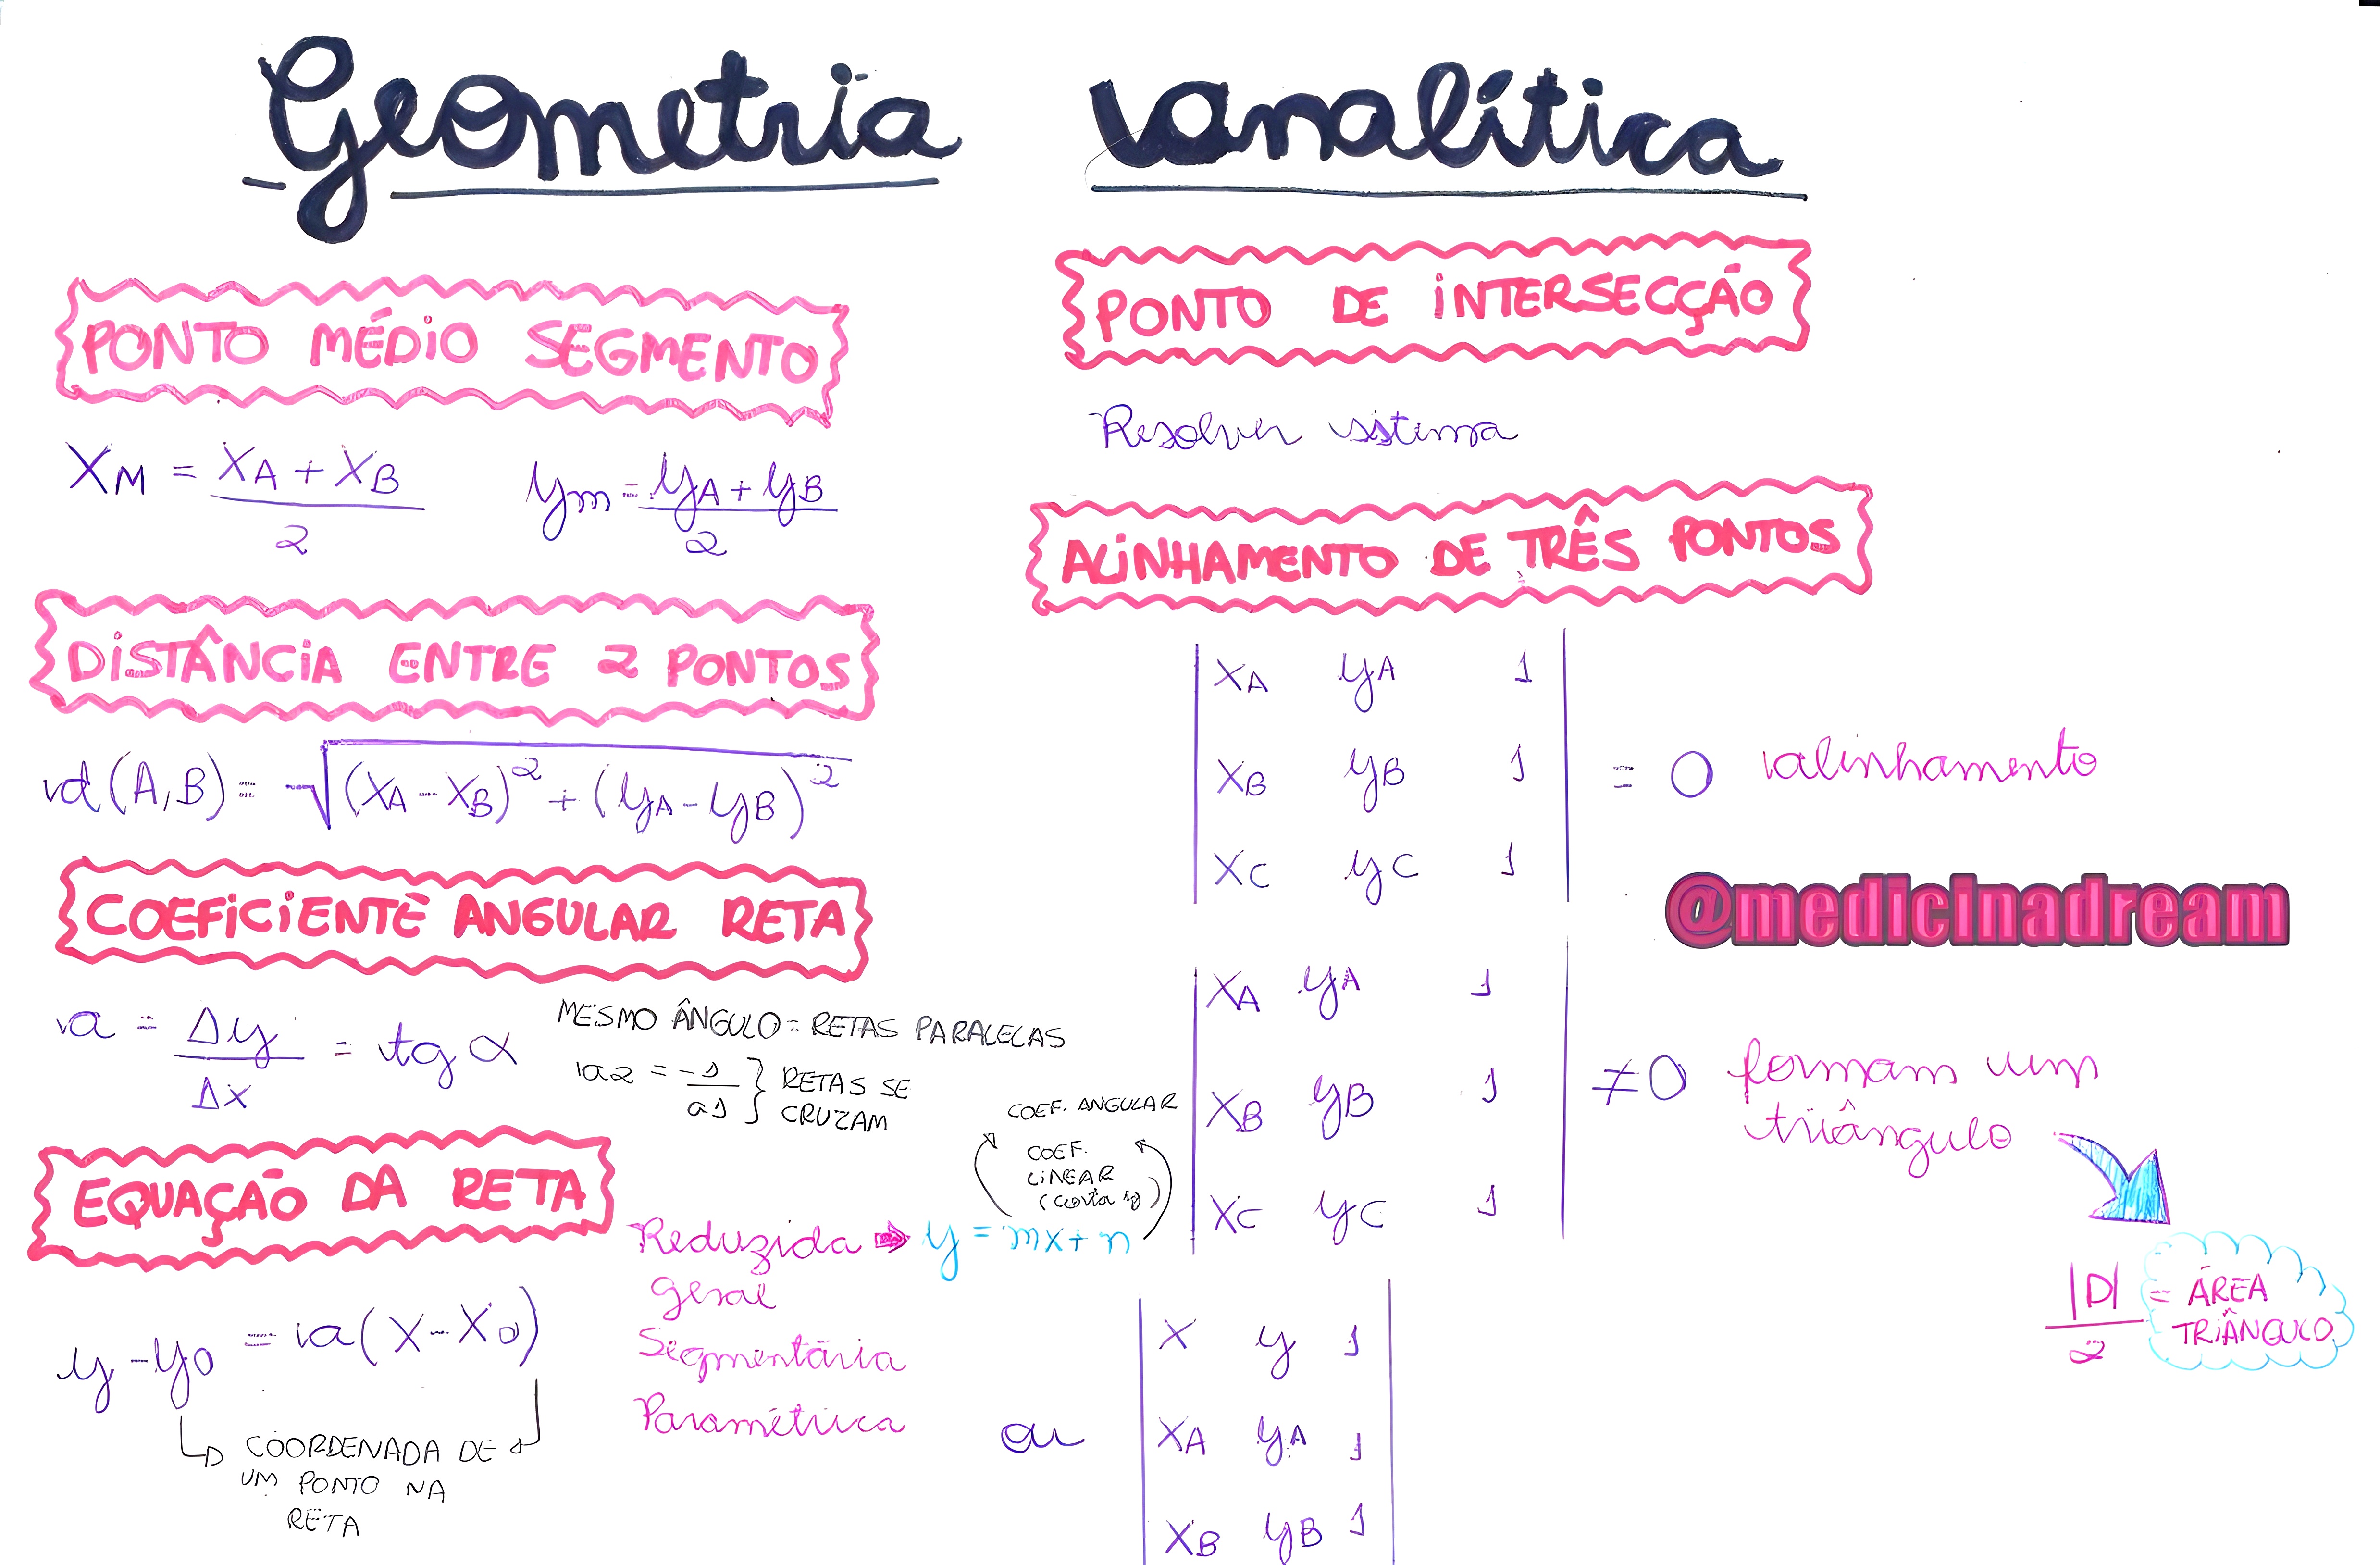 Geometria analítica
PONTO MÉDIO SEGMENTO
XM = XA + XB / 2
ym = yA + yB / 2
DISTÂNCIA ENTRE 2 PONTOS
d(A,B) = √(XA - XB)² + (yA - yB)²
COEFICIENTE ANGULAR RETA
a = Δy / Δx = tg α
MESMO ÂNGULO = RETAS PARALELAS
a2 = -1 / a1 } RETAS SE
CRUZAM
EQUAÇÃO DA RETA
y - y0 = a(X - X0)
COORDENADA DE
UM PONTO NA
RETA
Reduzida ⇒ y = mx + n
COEF. ANGULAR
COEF.
LINEAR
(corta y)
Geral
Segmentária
Paramétrica
ou
X y 1
XA yA 1
XB yB 1
PONTO DE INTERSECÇÃO
Resolver sistema
ALINHAMENTO DE TRÊS PONTOS
XA yA 1
XB yB 1
XC yC 1
= 0 alinhamento
@medicinadream
XA yA 1
XB yB 1
XC yC 1
≠ 0 formam um
triângulo
|D| / 2 = ÁREA
TRIÂNGULO